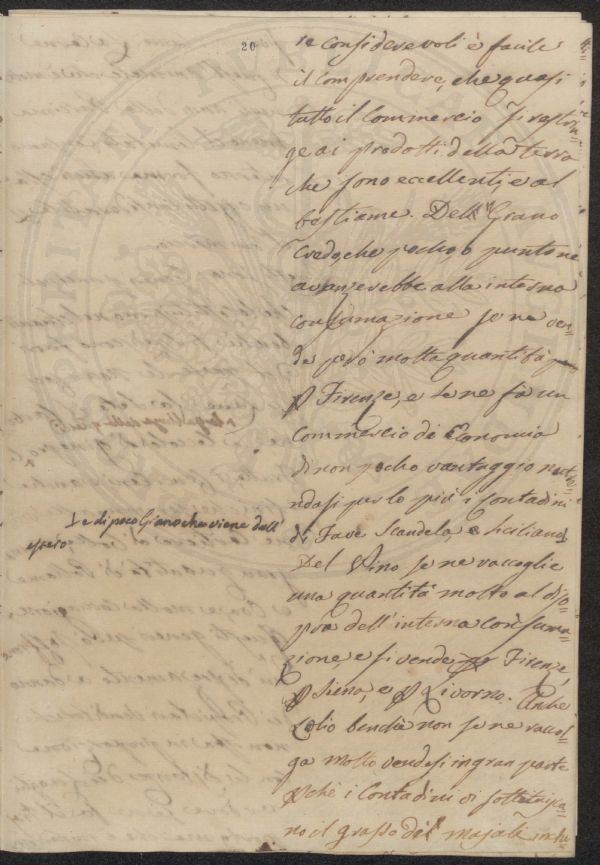 20
re considerevoli è facile
il comprendere, che quasi
tutto il Commercio si ristrin=
ge ai prodotti della terra
che sono eccellenti, e al
bestiame. Dell Grano
credo, che poche o punto ne
avanzerebbe alla interna
consumazione se ne ven=
de però molta quantità
p Firenze, e se ne fà un
Commercio di Economia
di non poche vantaggio nutre=
ndosi per lo più i Contadini
di Fave Scandela, e Siciliano
e di poco Grano che viene dall'
estero
Del Vino se ne raccoglie
una quantità molto al diso=
pra dell'interna consuma=
zione, e si vende p Firenze,
p Siena, e p Livorno. Anche
Lolio benchè non se ne raccol=
ga molto vendesi in gran parte
pchè i Contadini vi
no il grasso del majale